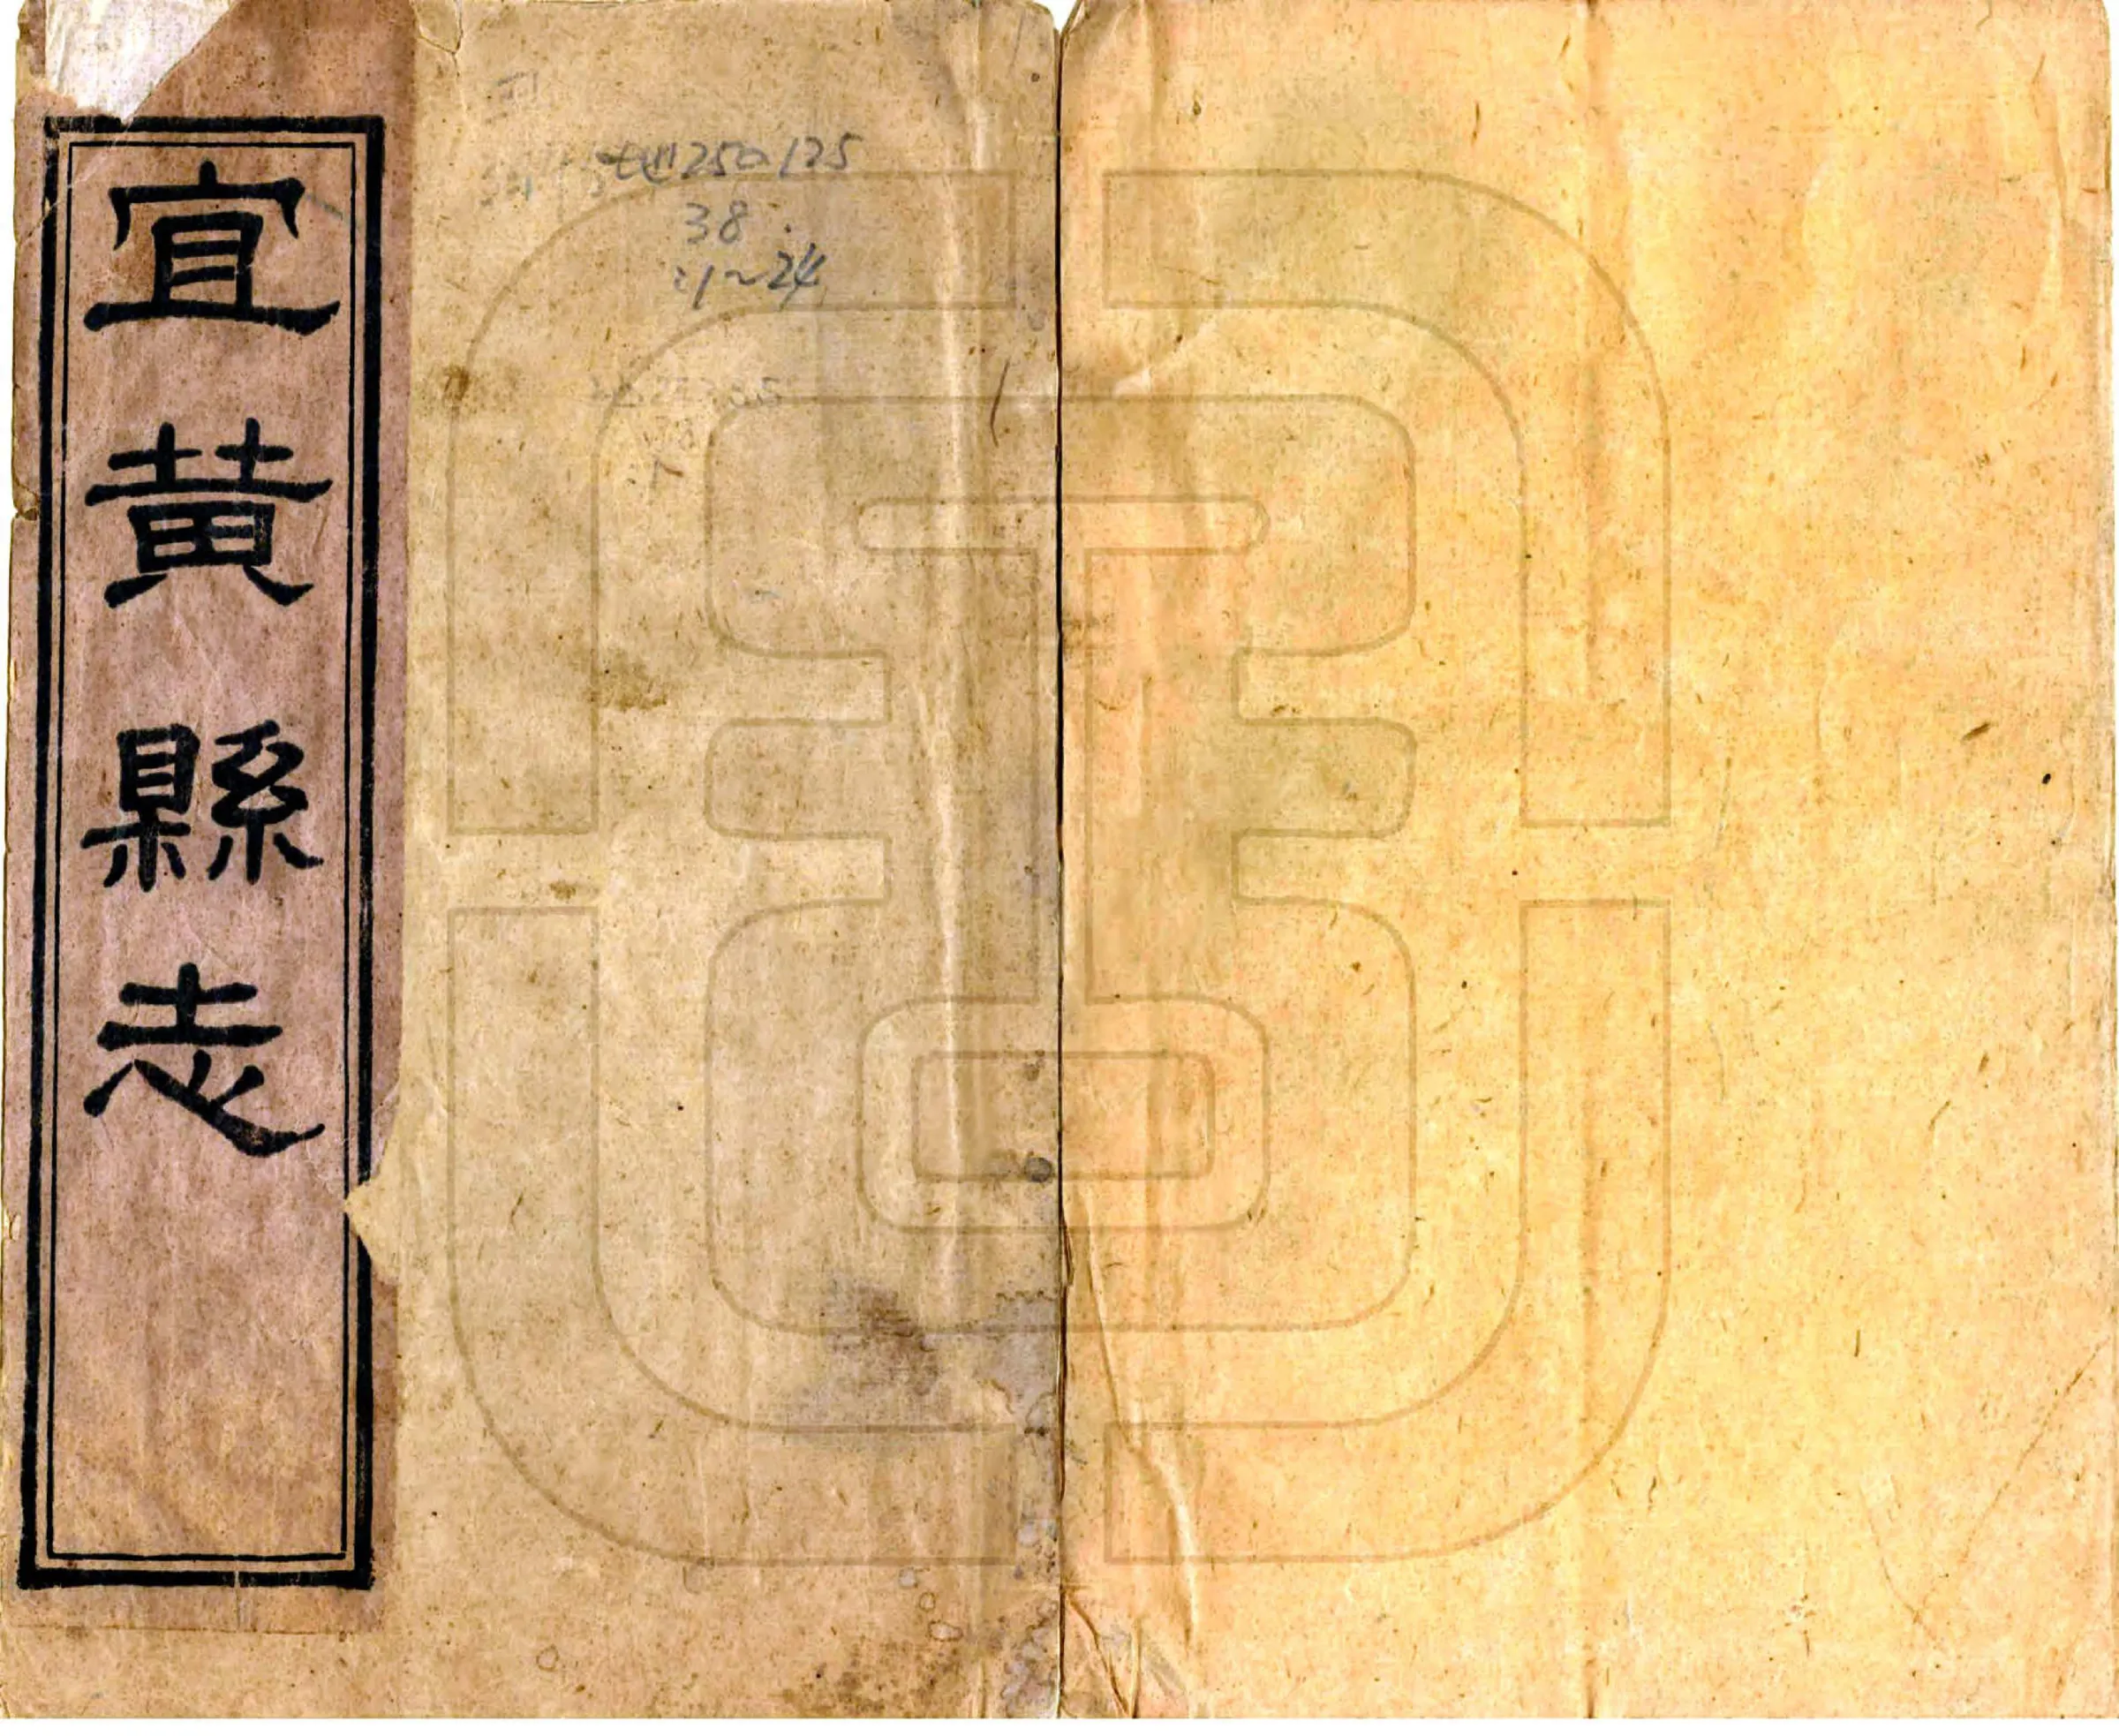 宜黃縣志
地250.125
38
:1~24